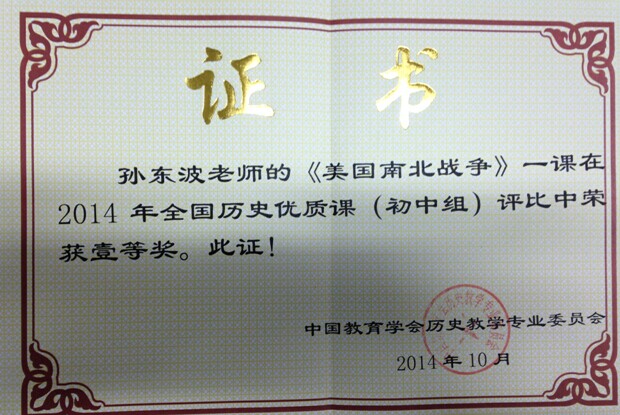 证 书
孙东波老师的《美国南北战争》一课在
2014 年全国历史优质课（初中组）评比中荣
获壹等奖。此证！
中国教育学会历史教学专业委员会
2014 年 10 月